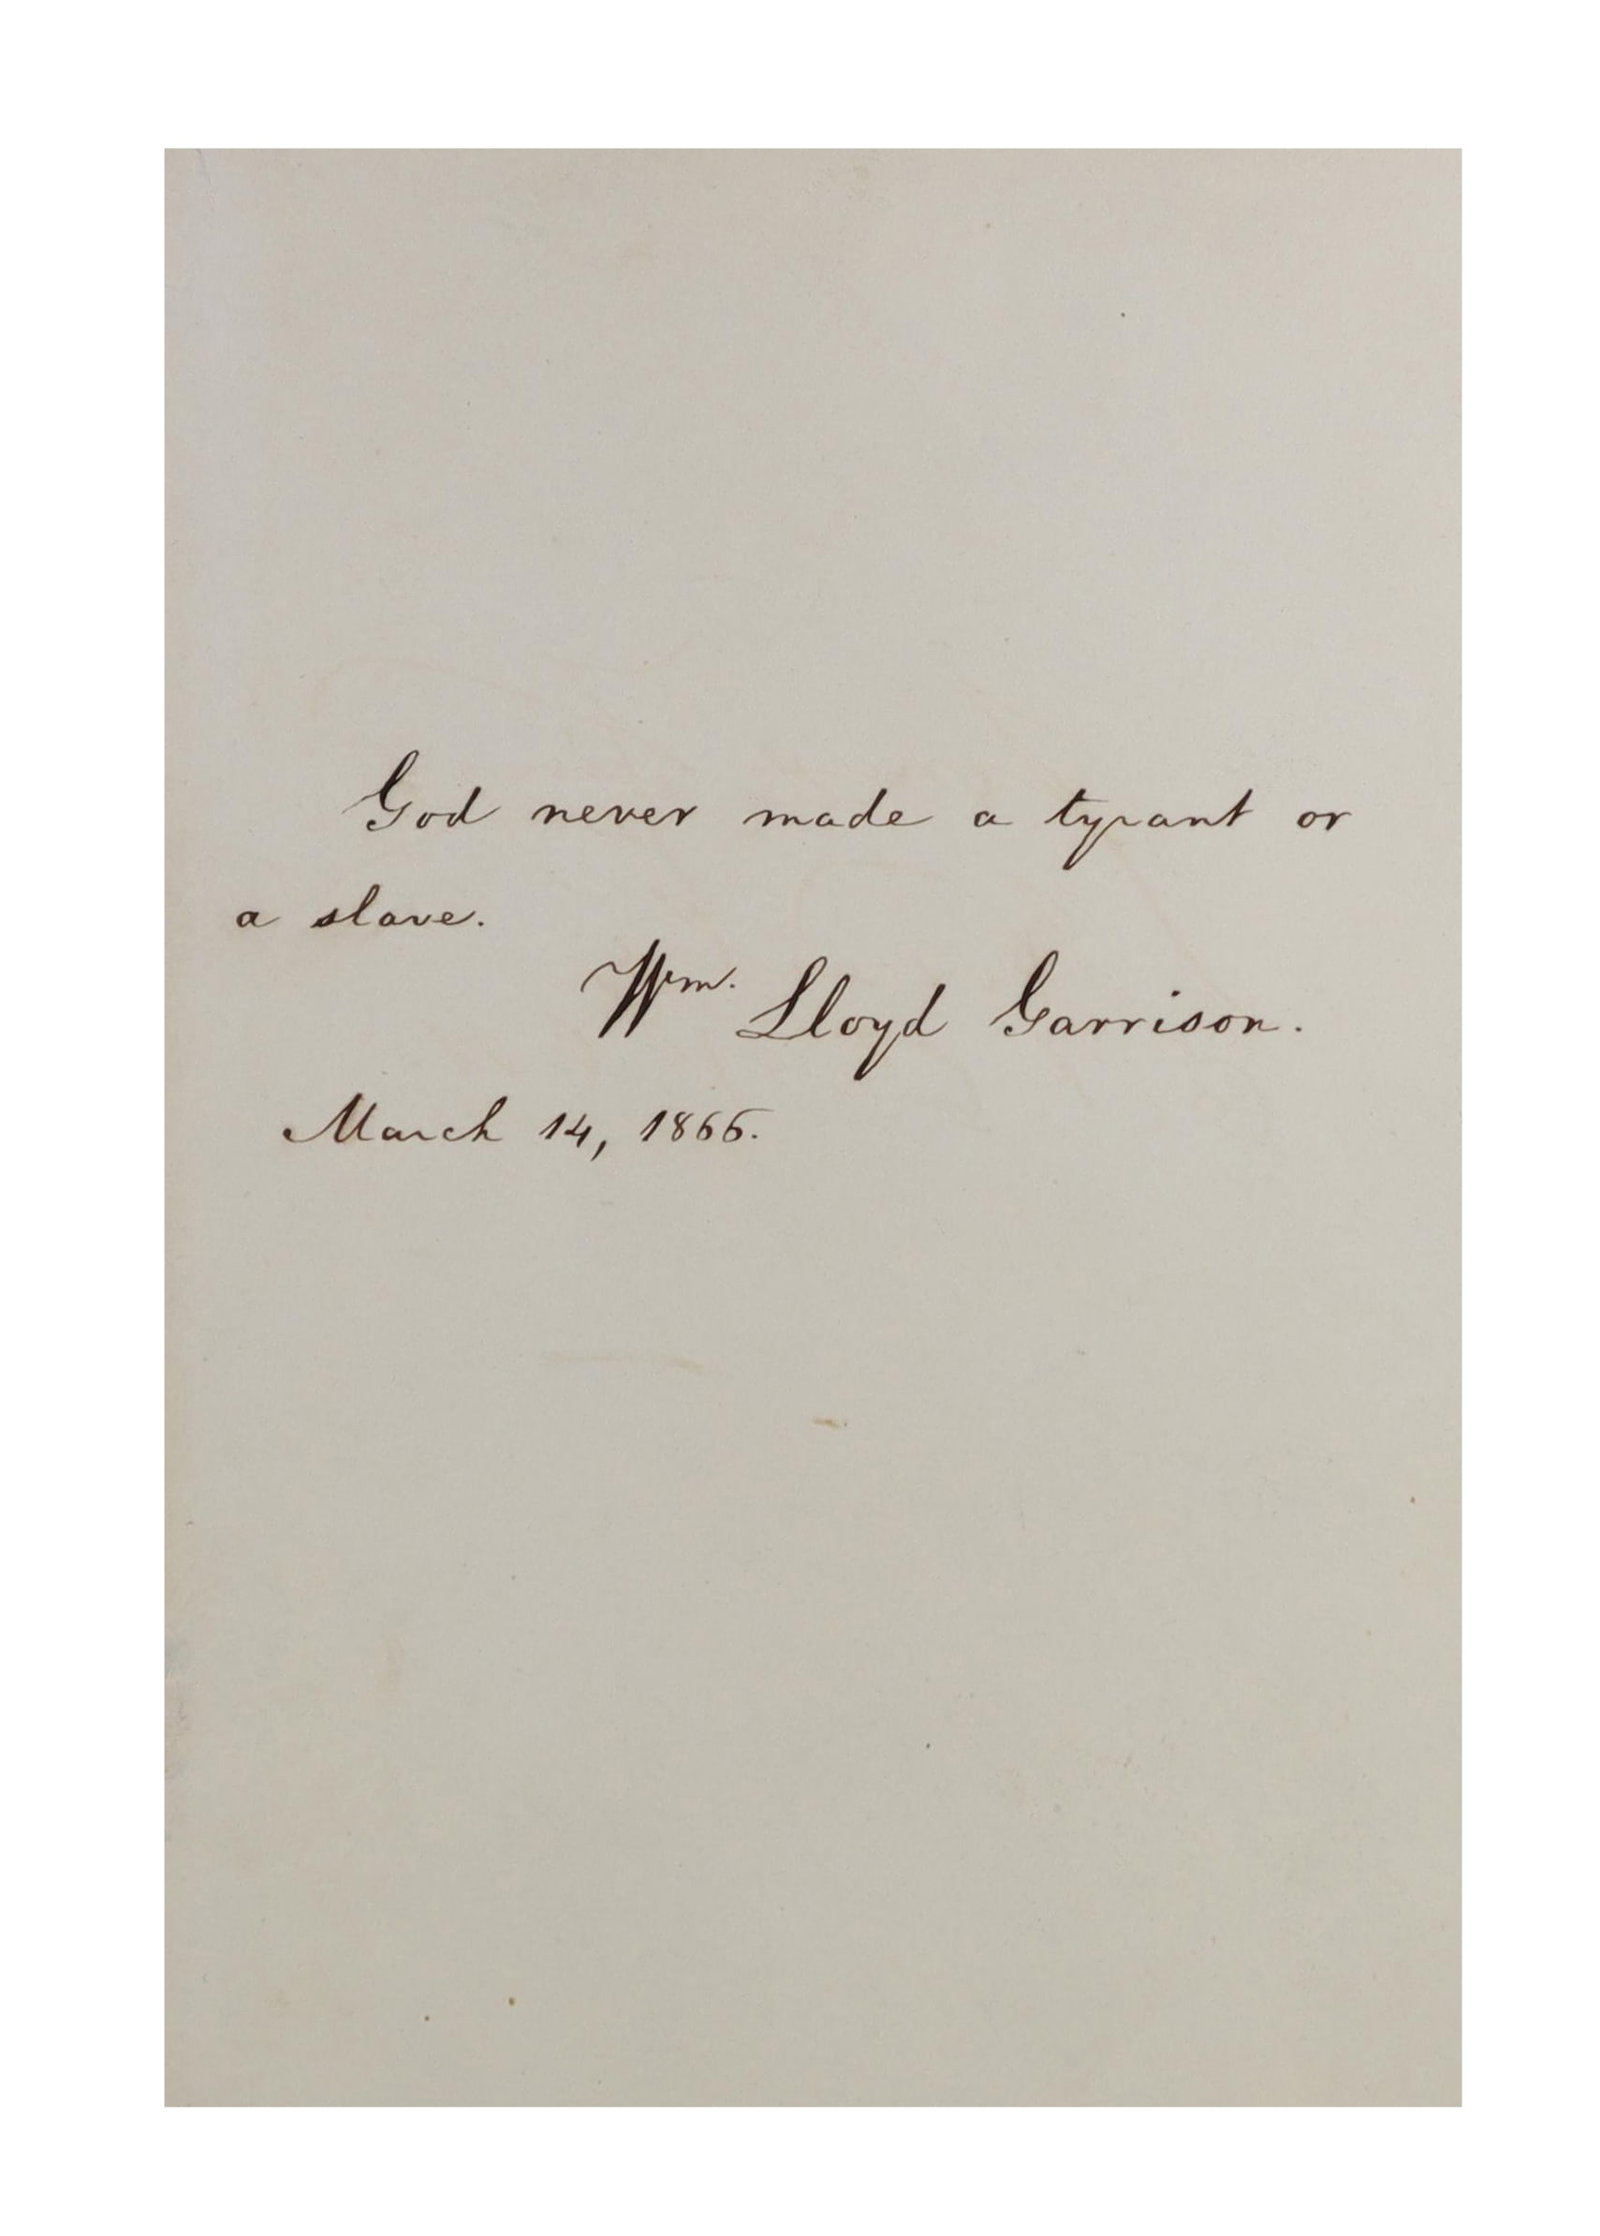 God never made a tyrant or
a slave.
Wm. Lloyd Garrison.
March 14, 1866.